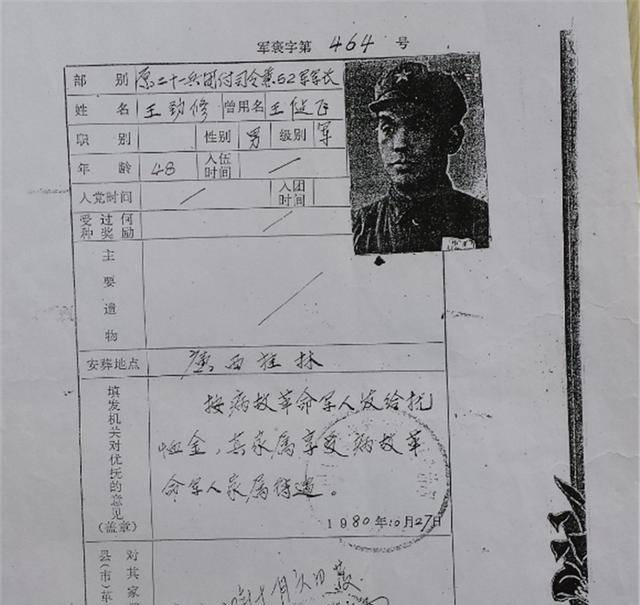 军褒字第 464 号
部别 原二十二兵团付司令兼52军军长
姓名 王劲修 曾用名 王健飞
职别 性别 男 级别 军
年龄 48 入伍时间 /
入党时间 / 入团时间
受过何种奖励 /
主要遗物 /
安葬地点 广西桂林
填发机关对优抚的意见(盖章)
按病故革命军人发给抚
恤金,其家属享受病故革
命军人家属待遇。
1980年10月27日
县(市)革
对其家